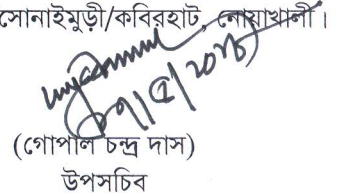 সোনাইমুড়ী/কবিরহাট, নোয়াখালী।
(গোপাল চন্দ্র দাস)
উপসচিব